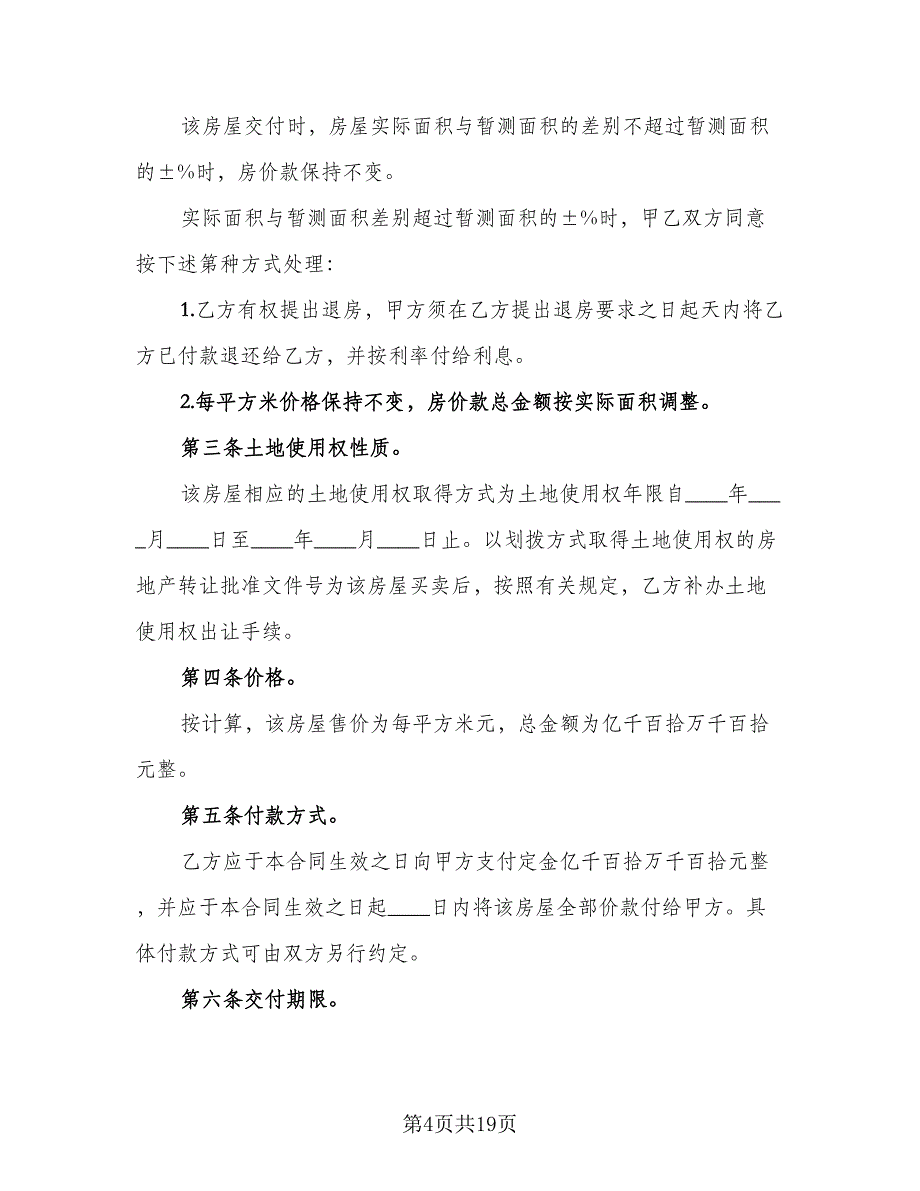 该房屋交付时，房屋实际面积与暂测面积的差别不超过暂测面积
的±%时，房价款保持不变。
实际面积与暂测面积差别超过暂测面积的±%时，甲乙双方同意
按下述第种方式处理：
1.乙方有权提出退房，甲方须在乙方提出退房要求之日起天内将乙
方已付款退还给乙方，并按利率付给利息。
2.每平方米价格保持不变，房价款总金额按实际面积调整。
第三条土地使用权性质。
该房屋相应的土地使用权取得方式为土地使用权年限自____年___
_月____日至____年____月____日止。以划拨方式取得土地使用权的房
地产转让批准文件号为该房屋买卖后，按照有关规定，乙方补办土地
使用权出让手续。
第四条价格。
按计算，该房屋售价为每平方米元，总金额为亿千百拾万千百拾
元整。
第五条付款方式。
乙方应于本合同生效之日向甲方支付定金亿千百拾万千百拾元整
，并应于本合同生效之日起____日内将该房屋全部价款付给甲方。具
体付款方式可由双方另行约定。
第六条交付期限。
第4页共19页